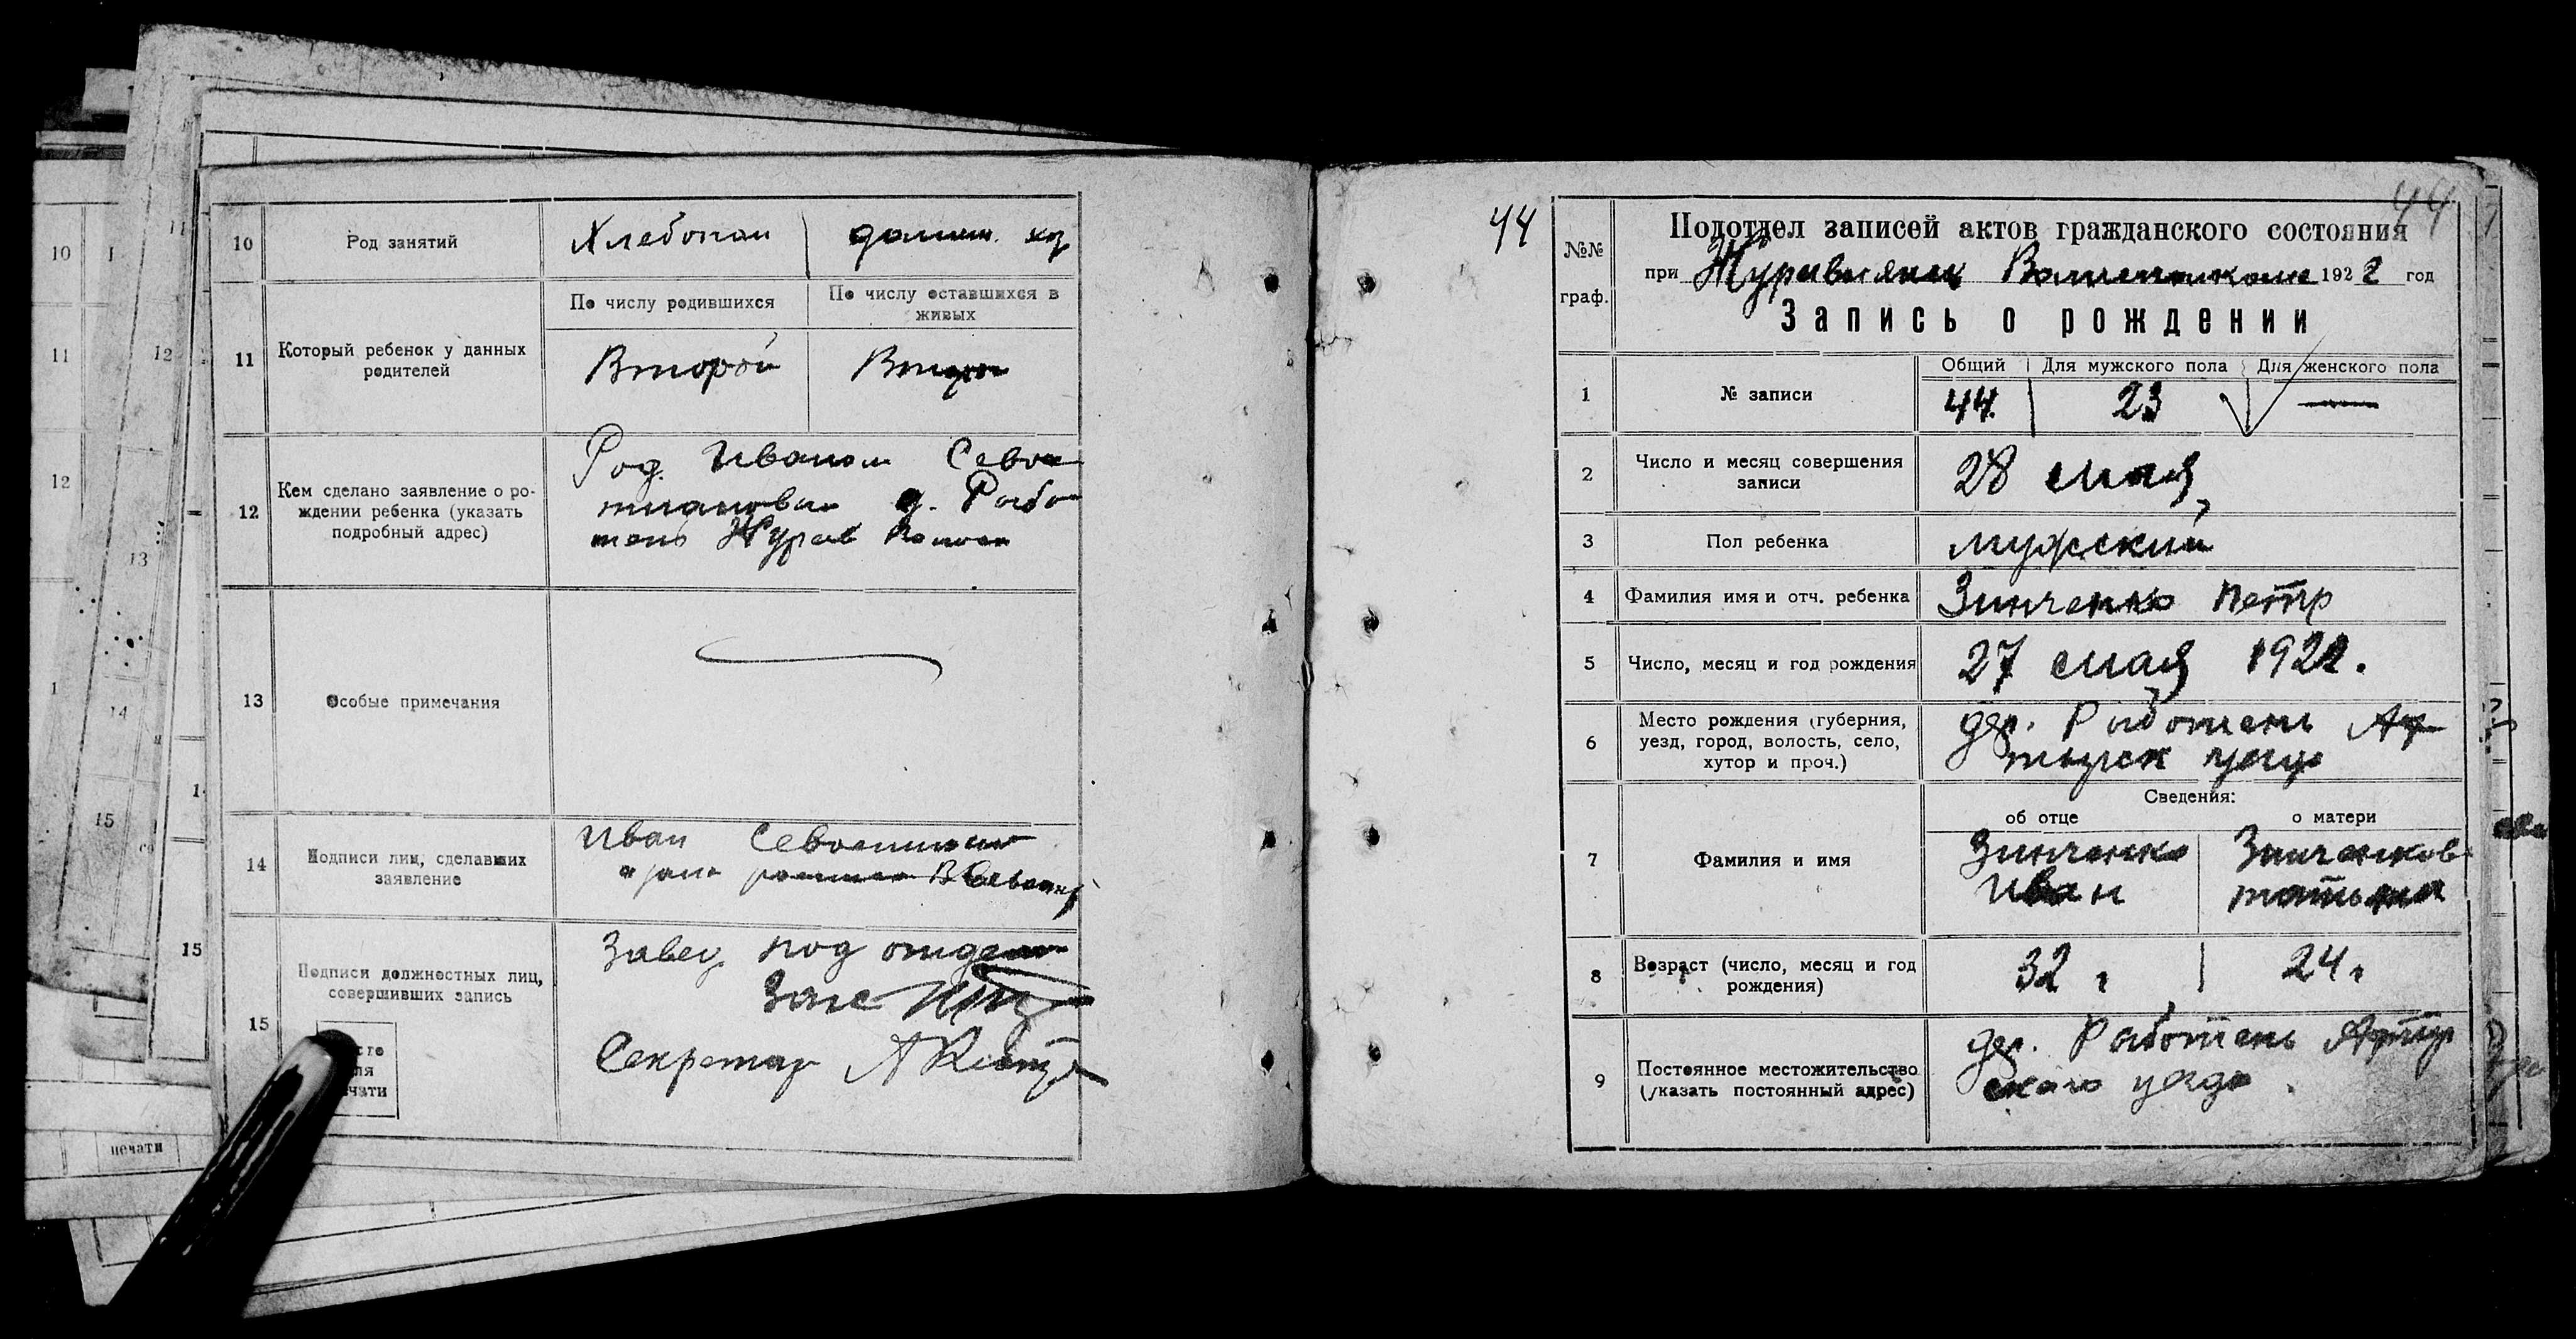 10
Род занятий
Хлебопаш
домаш. хоз
11
Который ребенок у данных
родителей
По числу родившихся
По числу оставшихся в
живых
Второй
Второй
12
Кем сделано заявление о ро-
ждении ребенка (указать
подробный адрес)
Род. Иваном Севос
тиановым д. Рыбо
тень Журав
13
Особые примечания
14
Подписи лиц, сделавших
заявление
Иван
15
Подписи должностных лиц,
совершивших запись
Завед под отдел
Загс
Секретар
печати
44
44
№№
граф.
Подотдел записей актов гражданского состояния
при Журавнянск Волисполкоме 1922 год
Запись о рождении
1
№ записи
Общий
Для мужского пола
Для женского пола
44.
23
—
2
Число и месяц совершения
записи
28 мая
3
Пол ребенка
мужский
4
Фамилия имя и отч. ребенка
Зинченко Петр
5
Число, месяц и год рождения
27 мая 1922.
6
Место рождения (губерния,
уезд, город, волость, село,
хутор и проч.)
дер. Рыботень Ах
тырск уезда
7
Фамилия и имя
Сведения:
об отце
о матери
Зинченко
Иван
Зинченков
татьяна
8
Возраст (число, месяц и год
рождения)
32 г
24 г
9
Постоянное местожительство
(указать постоянный адрес)
дер. Рыботень Ахтыр
скаго уезда